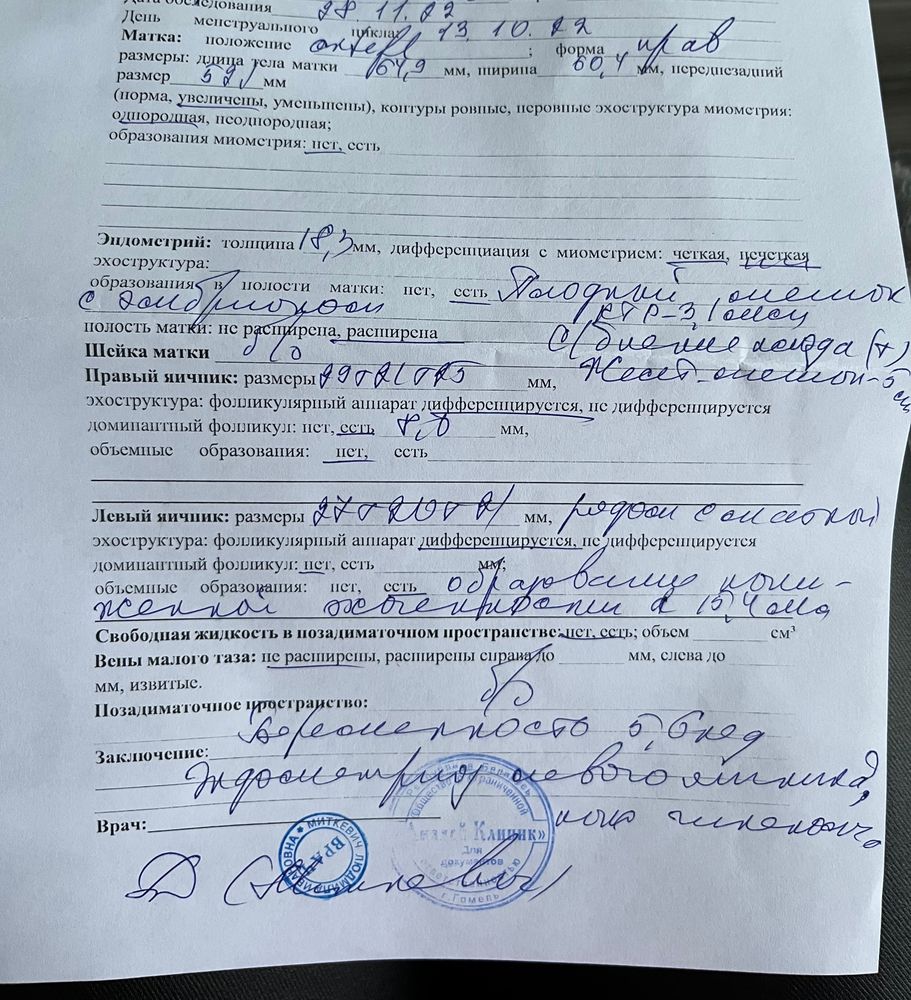 Дата обследования 28.11.22
День менструального цикла 13.10.22
Матка: положение antefl ; форма прав
размеры: длина тела матки 64,9 мм, ширина 60,4 мм, переднезадний
размер 59,1 мм
(норма, увеличены, уменьшены), контуры ровные, неровные эхоструктура миометрия:
однородная, неоднородная;
образования миометрия: нет, есть
Эндометрий: толщина 18,3 мм, дифференциация с миометрием: четкая, нечеткая
эхоструктура:
образования в полости матки: нет, есть Плодный
с эмбрионом КТР-3,1мм
полость матки: не расширена, расширена С/биение (+)
Шейка матки б/о
Правый яичник: размеры 29х21х25 мм, Желт.
эхоструктура: фолликулярный аппарат дифференцируется, не дифференцируется
доминантный фолликул: нет, есть 8,0 мм,
объемные образования: нет, есть
Левый яичник: размеры 27х20х21 мм, рядом с маткой
эхоструктура: фолликулярный аппарат дифференцируется, не дифференцируется
доминантный фолликул: нет, есть мм;
объемные образования: нет, есть образование пони-
женной эхогенности d 15,4 мм
Свободная жидкость в позадиматочном пространстве: нет, есть; объем см³
Вены малого таза: не расширены, расширены справа до мм, слева до
мм, извитые.
Позадиматочное пространство: б/о
Беременность 5,6 нед
Заключение:
Эндометриоид левого яичника,
Врач:
МИТКЕВИЧ ЛЮДМИЛА ИВАНОВНА
ВРАЧ
Республика Беларусь
Общество с ограниченной ответственностью
Клиник»
Для
документов
г.Гомель